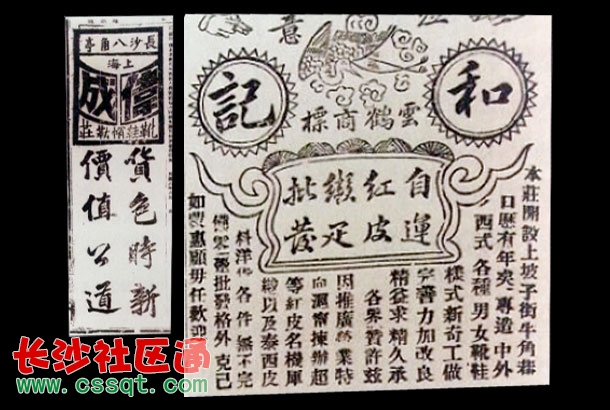 長沙八角亭
上海
成
貨色時新
價值公道
意
和記
雲鶴商標
自運
紅皮
批發
本莊開設上坡子街牛角巷
口歷有年矣專造中外
西式各種男女靴鞋
樣式新奇工做
完善力加改良
精益求精久承
各界賞許茲
因推廣營業特
向滬甯揀辦超
等紅皮名機庫
緞以及泰西皮
料洋貨各件無不完
備零躉批發格外克己
如蒙惠顧毋任歡迎
长沙社区通
www.cssqt.com